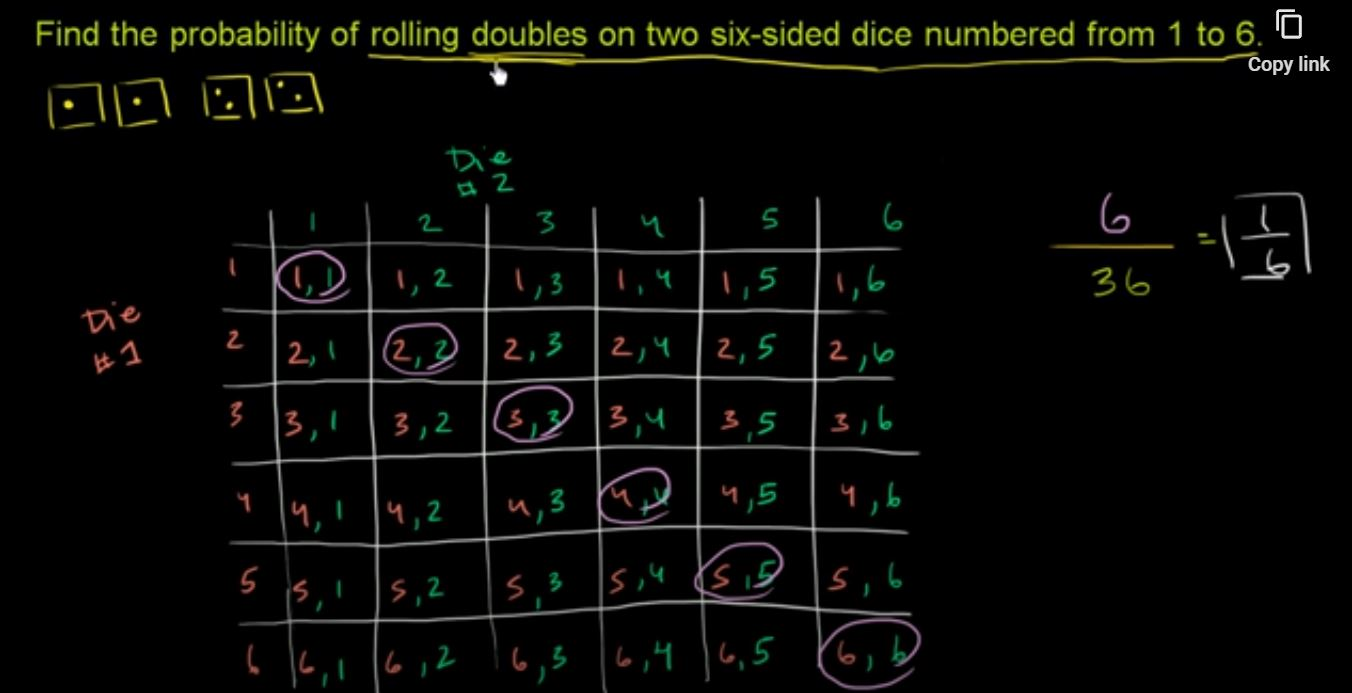 Find the probability of rolling doubles on two six-sided dice numbered from 1 to 6.
Copy link
Die
# 2
1 2 3 4 5 6
6
36
= 1
6
1 1,1 1,2 1,3 1,4 1,5 1,6
Die
#1
2 2,1 2,2 2,3 2,4 2,5 2,6
3 3,1 3,2 3,3 3,4 3,5 3,6
4 4,1 4,2 4,3 4,4 4,5 4,6
5 5,1 5,2 5,3 5,4 5,5 5,6
6 6,1 6,2 6,3 6,4 6,5 6,6